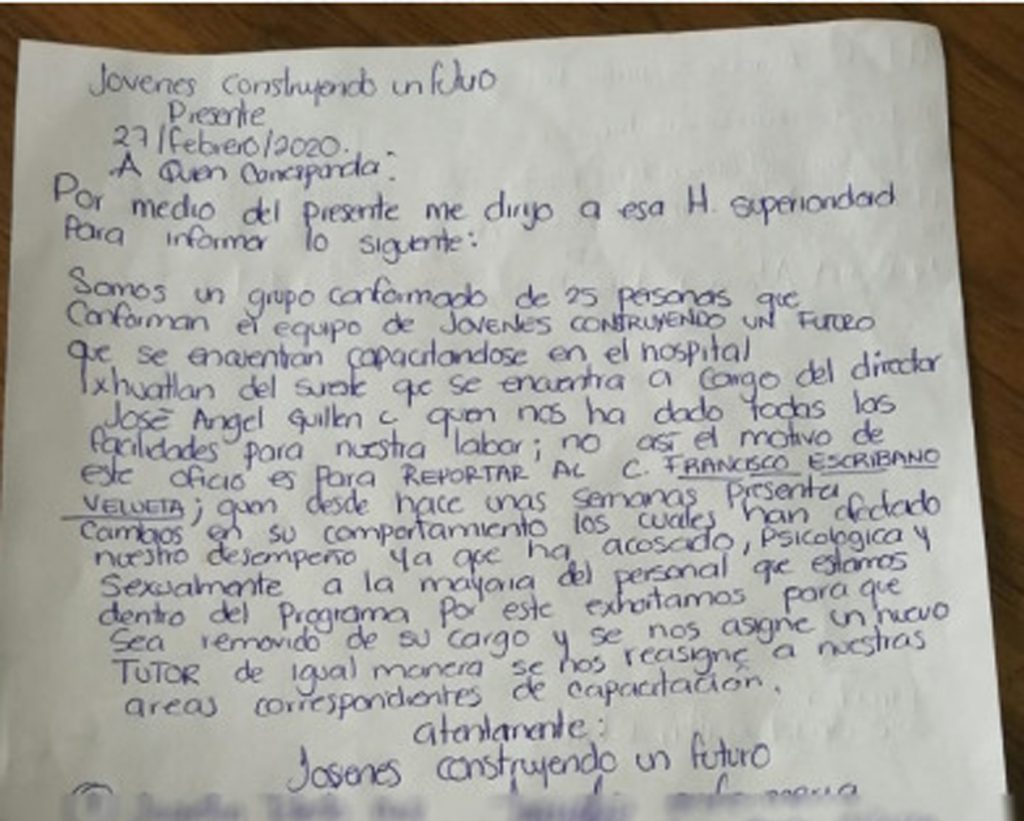 Jovenes construyendo un futuro
Presente
27/febrero/2020.
A Quien Corresponda:
Por medio del presente me dirijo a esa H. superioridad
Para informar lo siguiente:
Somos un grupo conformado de 25 personas que
Conforman el equipo de JOVENES CONTRUYENDO UN FUTURO
que se encuentran capacitandose en el hospital
Ixhuatlan del sureste que se encuentra a cargo del director
José Angel Guillen c quien nos ha dado todas las
facilidades para nuestra labor; no así el motivo de
este oficio es para REPORTAR AL C. FRANCISCO ESCRIBANO
VELUETA; quien desde hace unas semanas presenta
Cambios en su comportamiento los cuales han afectado
nuestro desempeño ya que ha acosado, Psicologica y
Sexualmente a la mayoria del personal que estamos
dentro del Programa Por este exhortamos para que
Sea removido de su cargo y se nos asigne un nuevo
TUTOR de igual manera se nos reasigne a nuestras
areas correspondientes de capacitación.
atentamente:
Jovenes construyendo un futuro